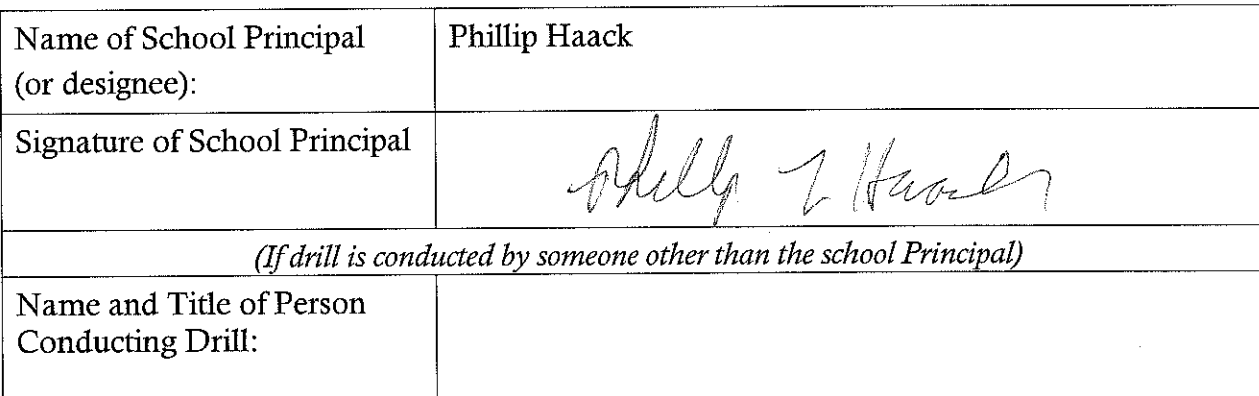 Name of School Principal
(or designee):
Phillip Haack
Signature of School Principal
Phillip L Haack
(If drill is conducted by someone other than the school Principal)
Name and Title of Person
Conducting Drill: